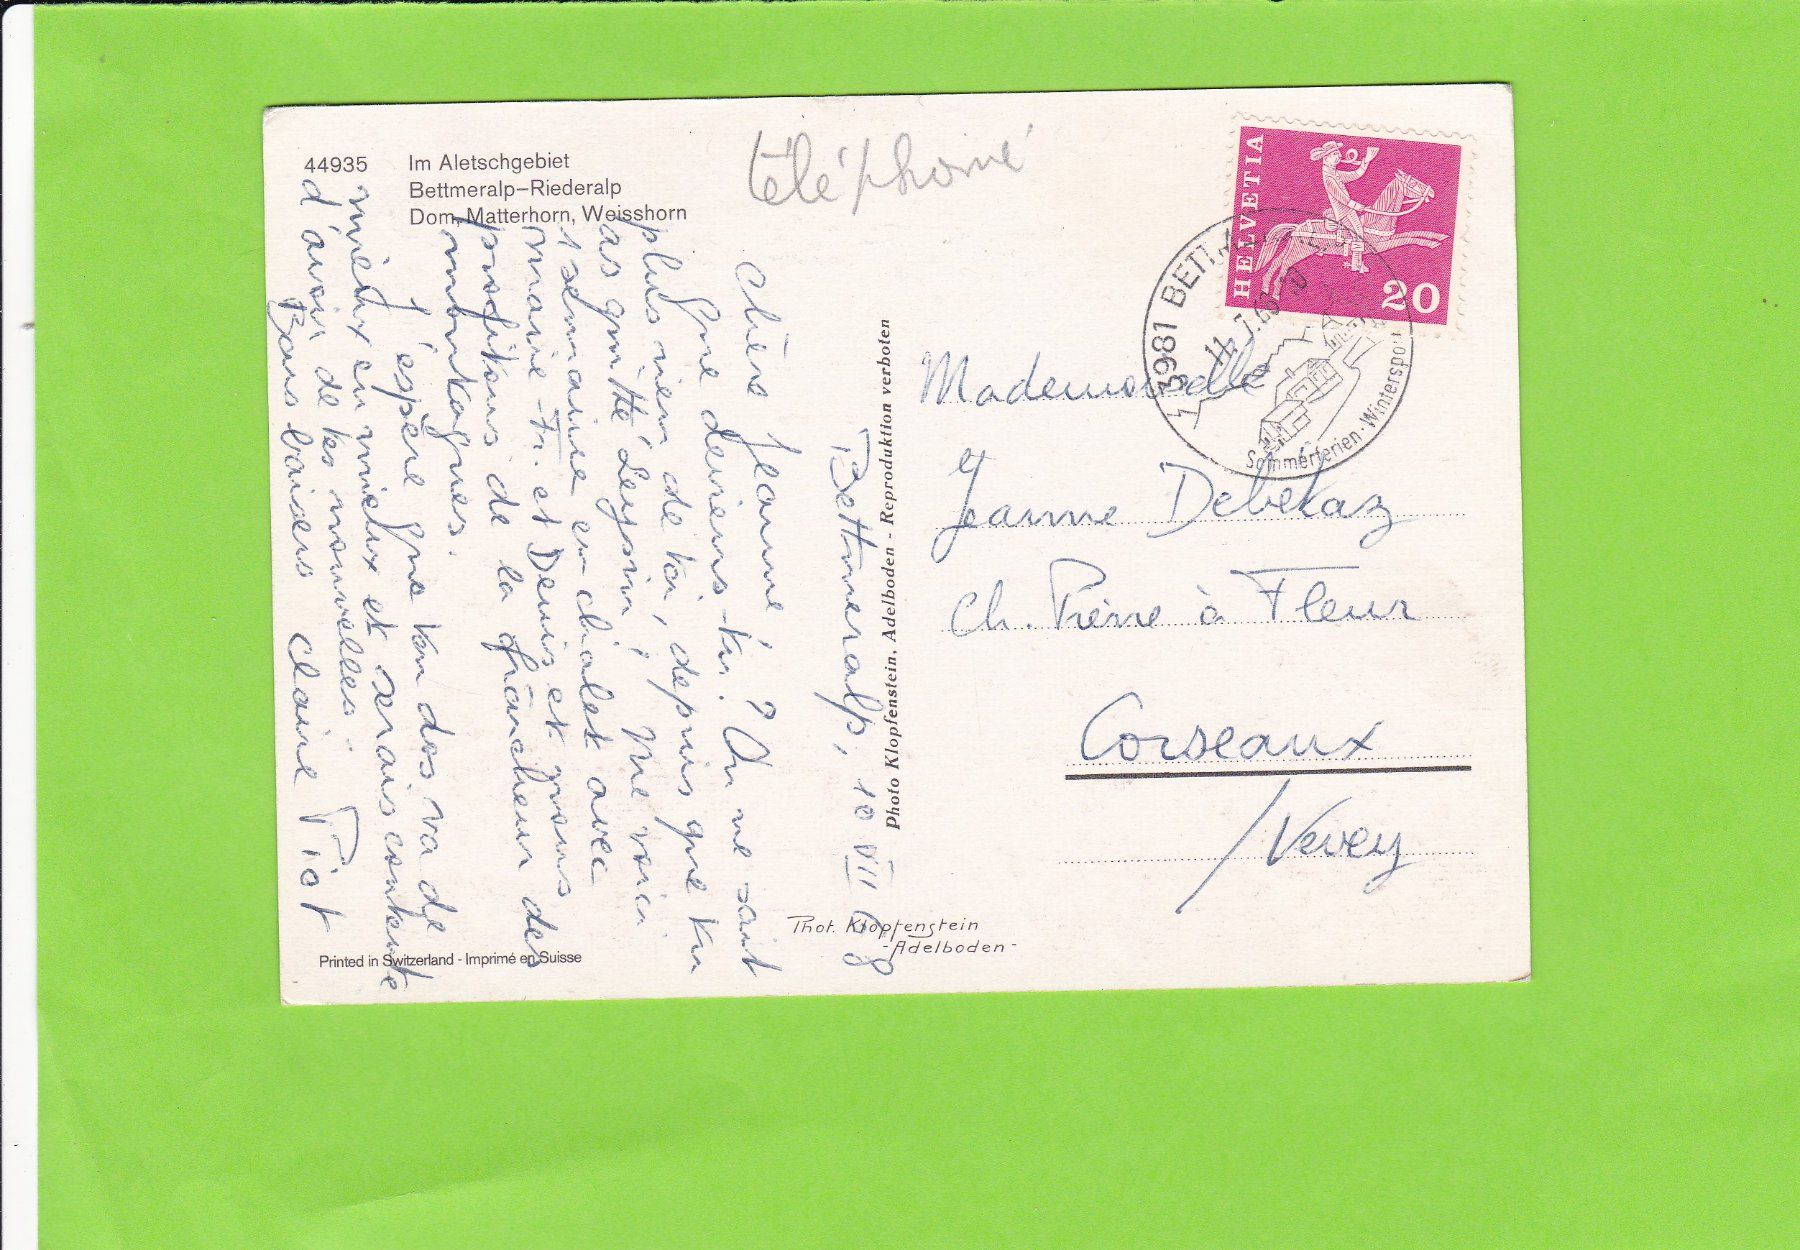 44935 Im Aletschgebiet
Bettmeralp–Riederalp
Dom, Matterhorn, Weisshorn
téléphoné
HELVETIA
20
3981 BETTMERALP
11.7.68-10
Sommerferien-Wintersport
Bettmeralp, 10 VII 68
Chère Jeanne,
Que deviens-tu? On ne sait
plus rien de toi, depuis que tu
as quitté Leysin! Me voici
1 semaine en chalet avec
Marie-Fr. et Denis et nous
profitons de la fraîcheur des
montagnes.
J'espère que ton dos va de
mieux en mieux et serais contente
d'avoir de tes nouvelles.
Bons baisers Claire Piot
Photo Klopfenstein, Adelboden - Reproduktion verboten
Mademoiselle
Jeanne Debétaz
Ch. Pierre à Fleur
Corseaux
/Vevey
Phot. Klopfenstein
-Adelboden-
Printed in Switzerland - Imprimé en Suisse